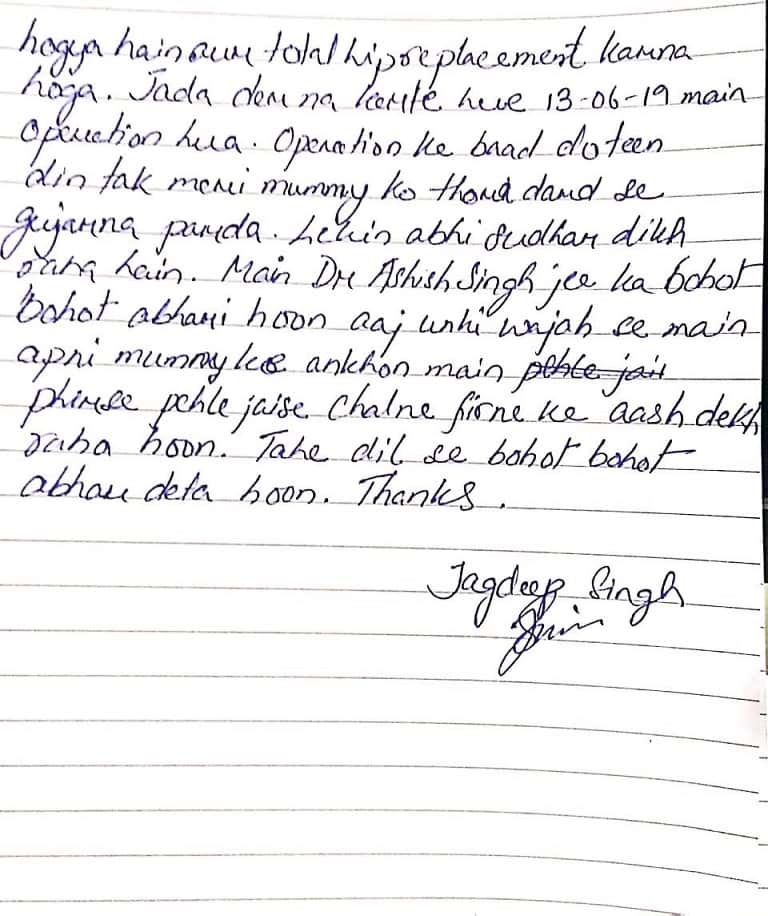 hogya hain aur total hip replacement karna
hoga. Jada der na karte hue 13-06-19 main
Operation hua. Operation ke baad do teen
din tak meri mummy ko thora dard se
gujarna parda. Lekin abhi sudhar dikh
raha hain. Main Dr Ashish Singh jee ka bohot
bohot abhari hoon aaj unhi wajah se main
apni mummy kee ankhon main pehle jais
phirse pehle jaise chalne firne ke aash dekh
raha hoon. Tahe dil se bohot bohot
abhar deta hoon. Thanks.
Jagdeep Singh